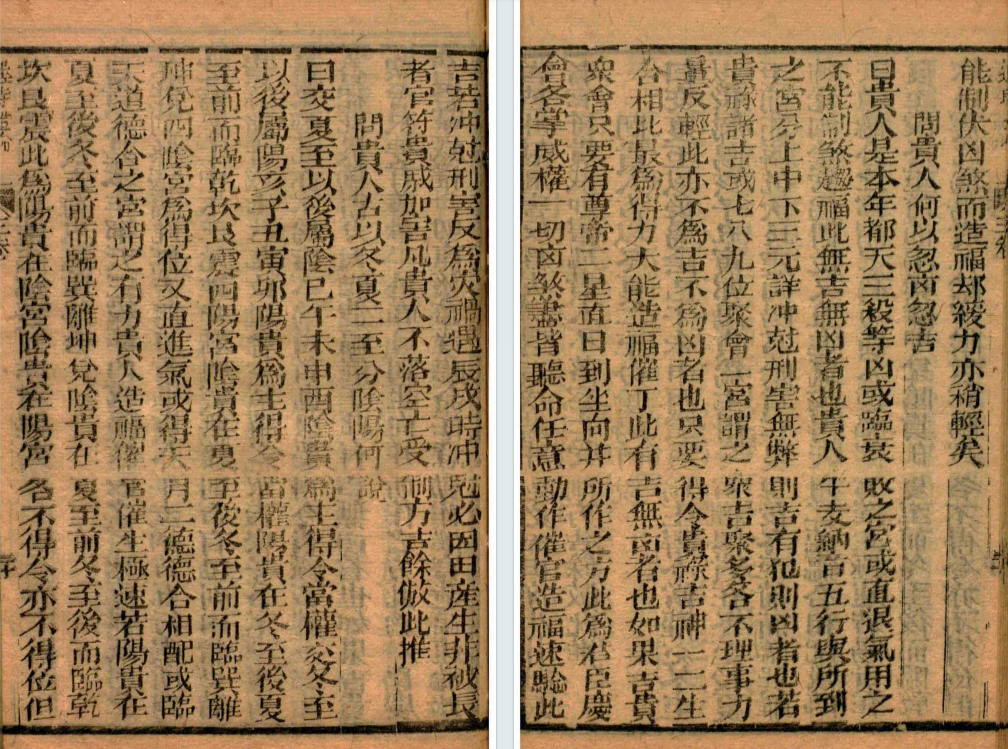 能制伏凶煞而造福却緩力亦稍輕矣
問貴人何以忽凶忽吉
曰貴人是本年都天三殺等凶或臨衰敗之宮或直退氣用之
不能制煞趨福此無吉無凶者也貴人干支納音五行與所到
之宮分上中下三元詳沖尅刑害無弊則吉有犯則凶者也若
貴祿諸吉或七八九位聚會一宮謂之衆吉聚多各不理事力
量反輕此亦不為吉不為凶名也只要得令貴祿吉神一二生
合相比最為得力大能造福催丁此有吉無凶者也如果吉貴
衆會只要有尊帝二星直日到坐向并所作之方此為君臣慶
會各掌威權一切凶煞盡皆聽命任意動作催官造福速驗此
吉若沖尅刑害反為災禍遇辰戌時沖尅必因田産生非被長
者官符貴戚加害凡貴人不落空亡受制方吉餘倣此推
問貴人古以冬夏二至分陰陽何說
曰交夏至以後屬陰巳午未申酉陰貴為主得令當權交冬至
以後屬陽亥子丑寅卯陽貴為主得令當權陽貴在冬至後夏
至前而臨乾坎艮震四陽宮陰貴在夏至後冬至前而臨巽離
坤兌四陰宮為得位又直進氣或得天月二德德合相配或臨
天道德合之宮謂之有力貴人造福催官催生極速若陽貴在
夏至後冬至前而臨巽離坤兌陰貴在夏至前冬至後而臨乾
坎艮震此為陽貴在陰宮陰貴在陽宮各不得令亦不得位但